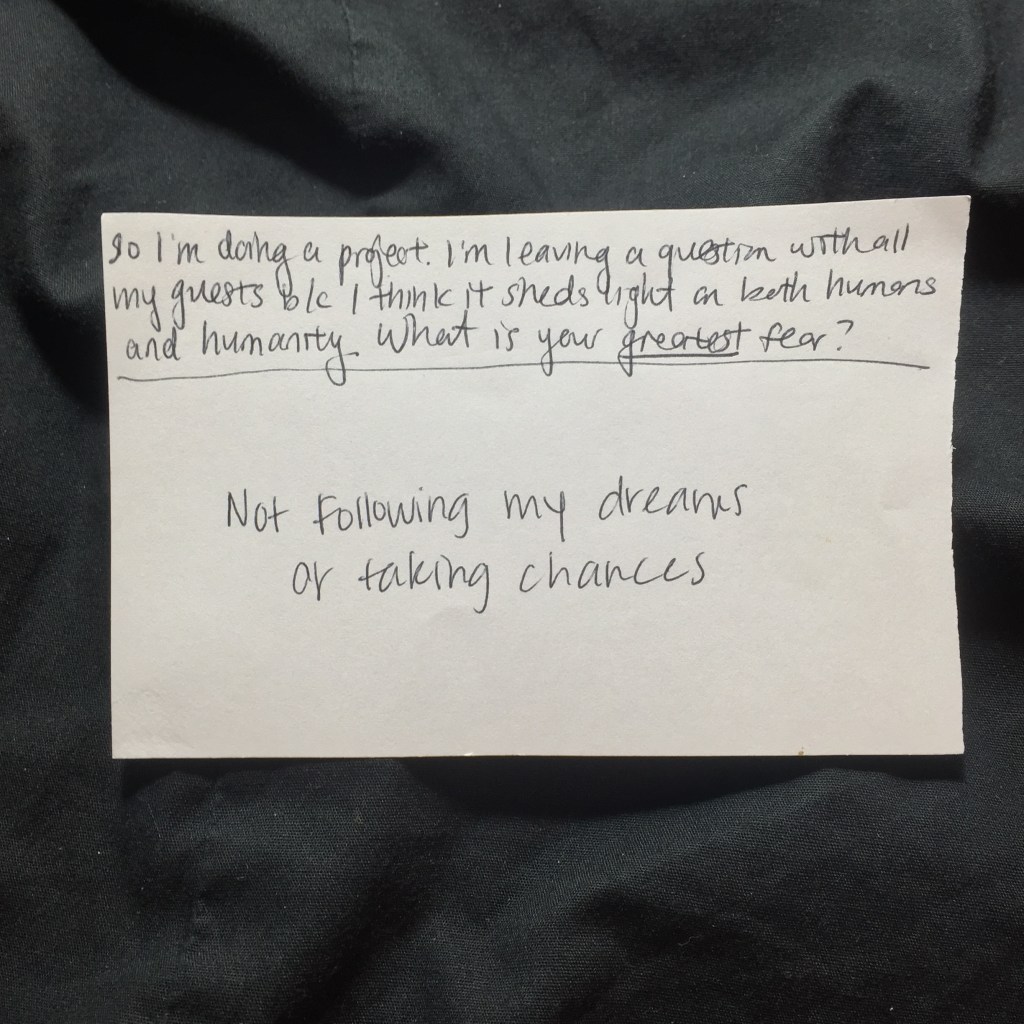 So I'm doing a project. I'm leaving a question with all
my guests b/c I think it sheds light on both humans
and humanity. What is your greatest fear?
Not Following my dreams
or taking chances